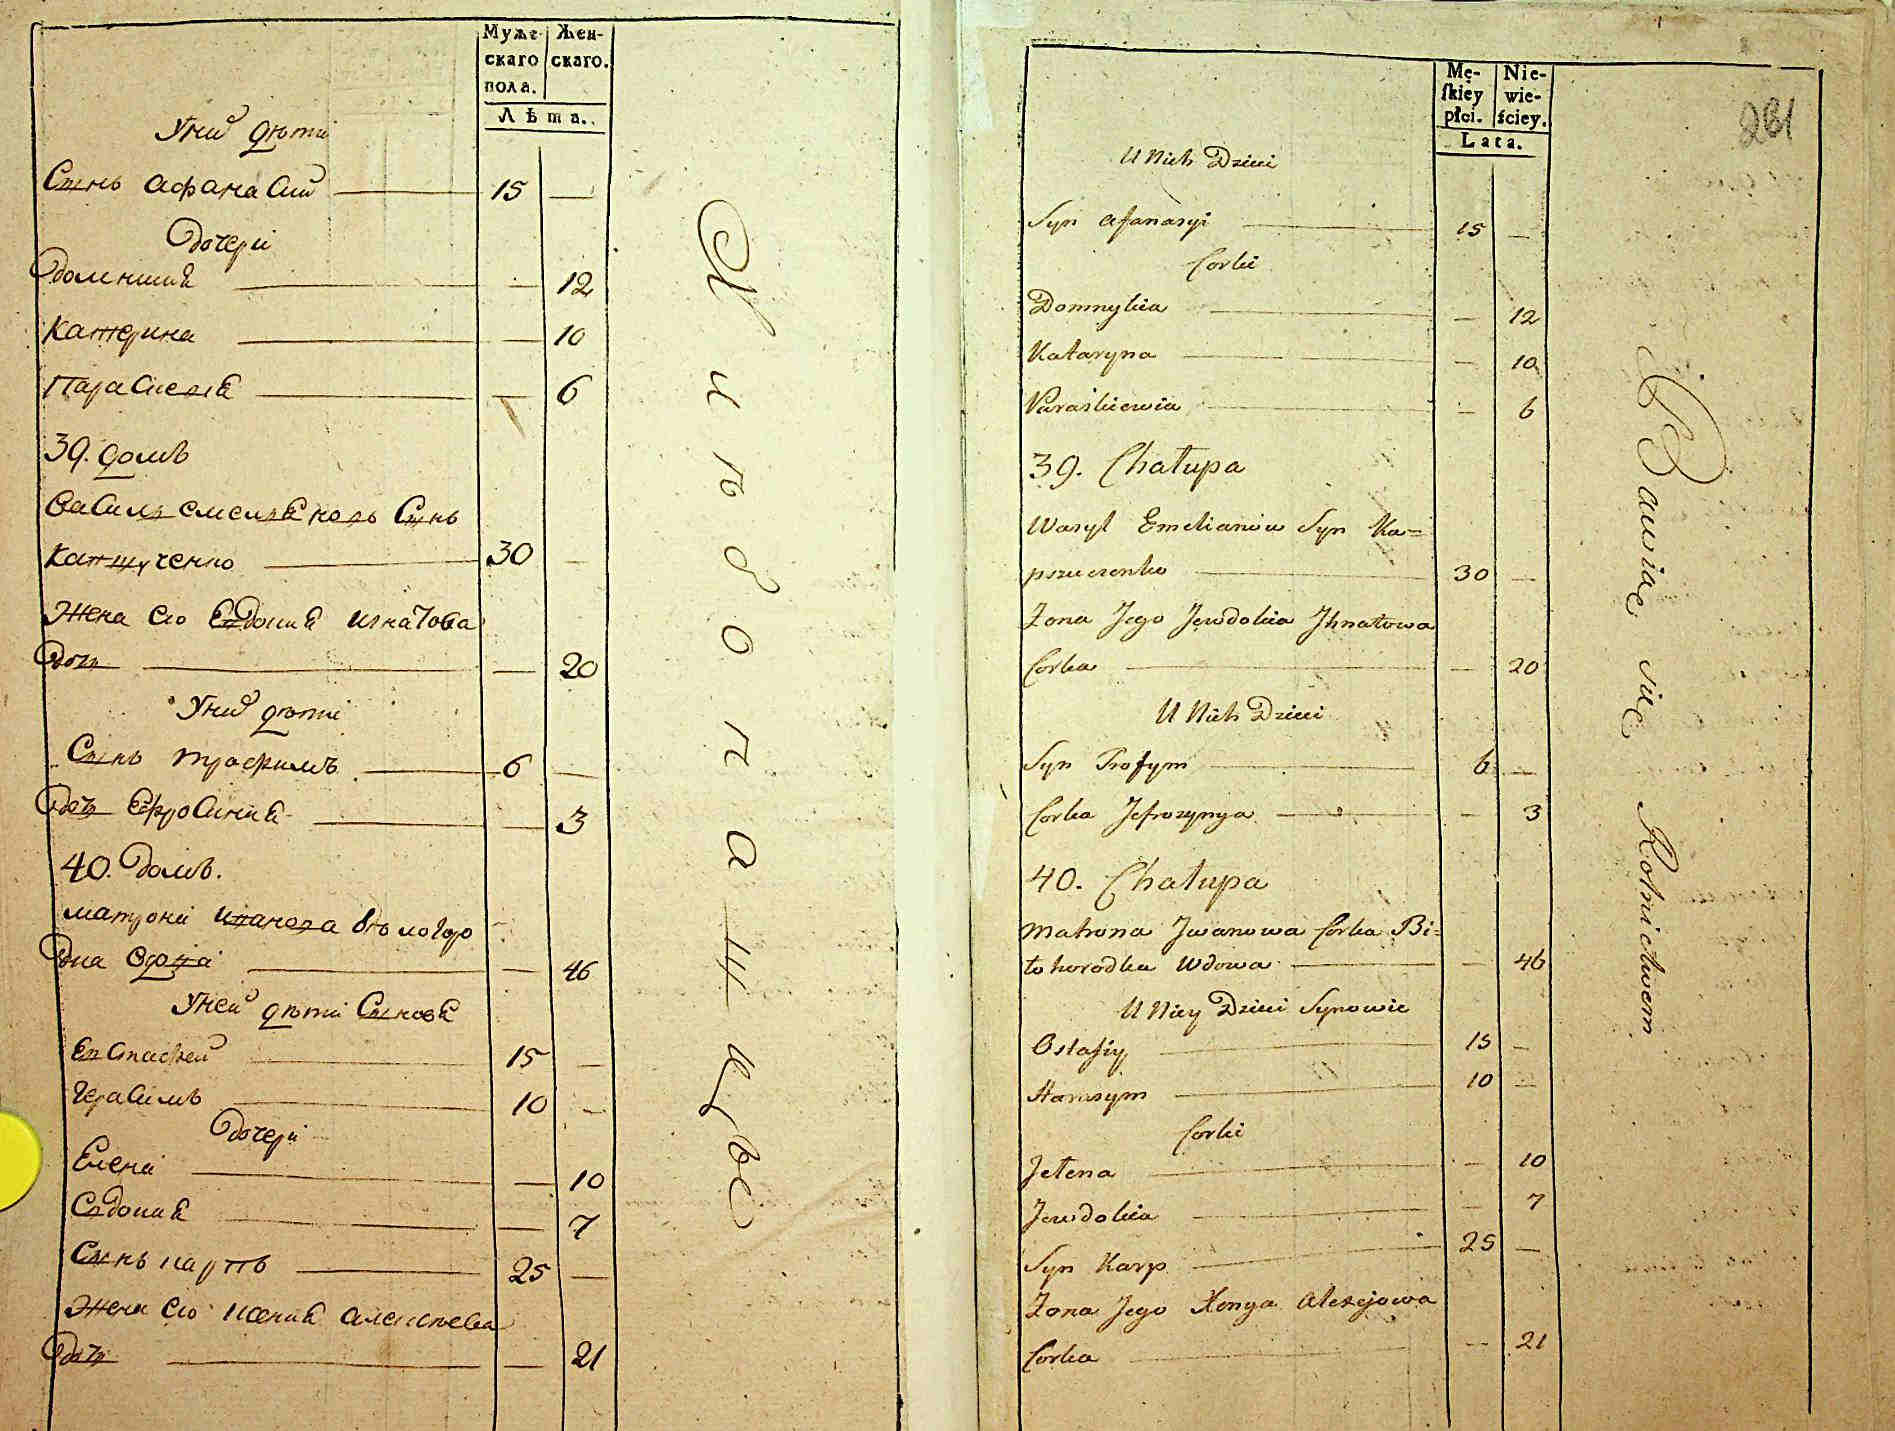 Муже-
скаго
пола.
Жен-
скаго.
Лѣта.
У них дѣти
Сынъ Афанасий 15 —
Дочери
Доминика — 12
Катерина — 10
Параскевия — 6
39. домъ
Василь Емельяновъ Сынъ
Капщученко 30 —
Жена его Евдокия Игнатова
Дочь — 20
У них дѣти
Сынъ Трофимъ 6 —
Дочь Ефросиния — 3
40. Домъ.
Матрона Иванова Бѣлогоро
дка вдова — 46
У ней дѣти Синовя
Евстафей 15 —
Герасимъ 10 —
Дочери
Елена — 10
Евдокия — 7
Сынъ Карпъ 25 —
Жена его Ксения Алексѣева
Дочь — 21
Хлѣбопашцы
Mę-
ſkiey
płci.
Nie-
wie-
ściey.
Lata.
281
U Nich Dzieci
Syn Afanasyi 15 —
Corki
Domnykia — 12
Kataryna — 10
Paraskiewia — 6
39. Chałupa
Wasyl Emelianow Syn Ka=
pszuczenko 30 —
Zona Jego Jewdokia Jhnatowa
Corka — 20
U Nich Dzieci
Syn Trofym 6 —
Corka Jefrozynya — 3
40. Chałupa
Matrona Jwanowa Corka Bi=
łohorodka Wdowa — 46
U Niey Dzieci Synowie
Ostafiy 15 —
Harasym 10 —
Corki
Jelena — 10
Jewdokia — 7
Syn Karp 25 —
Zona Jego Xenya Alexejowa
Corka — 21
Bawiąc się Rolnictwem